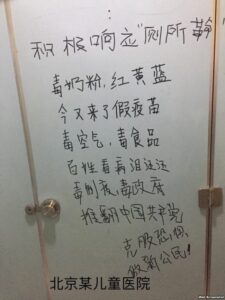 积极响应"厕所革命"
毒奶粉,红黄蓝
今又来了假疫苗
毒空气,毒食品
百姓看病泪汪汪
毒制度,毒政府
推翻中国共产党
克服恐惧
做新公民!
北京某儿童医院